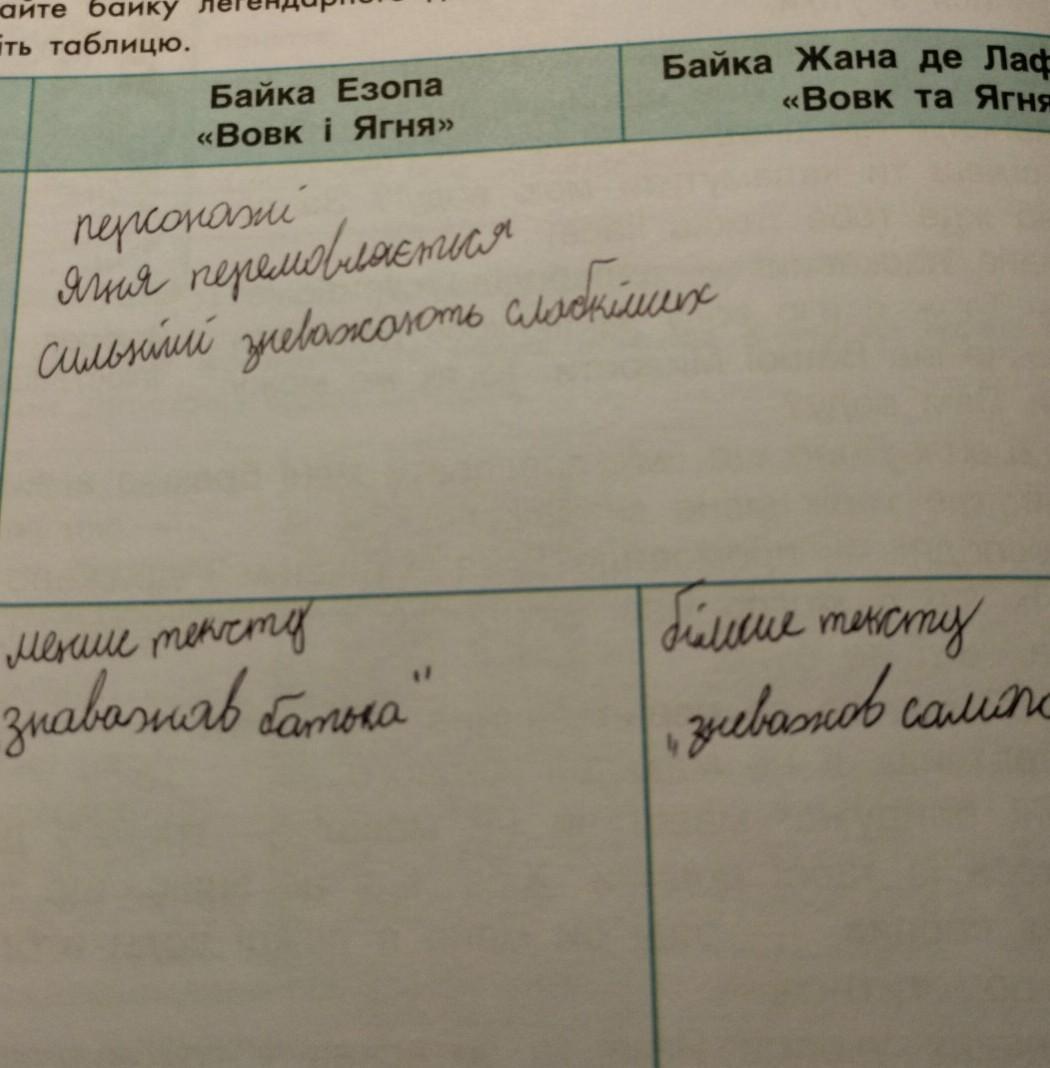 айте байку легендарного
іть таблицю.
Байка Езопа
«Вовк і Ягня»
Байка Жана де Лаф
«Вовк та Ягня
персонажі
Ягня перемовляється
Сильніші зневажають слабкіших
менше тексту
знаважав батька"
більше тексту
„зневажав самого